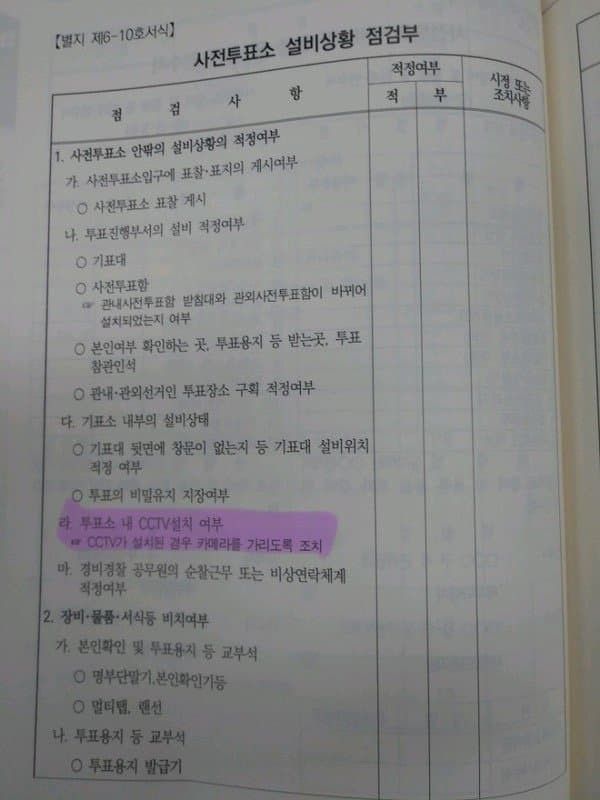 【별지 제6-10호서식】
사전투표소 설비상황 점검부
점 검 사 항
적정여부
적 부
시정 또는
조치사항
1. 사전투표소 안팎의 설비상황의 적정여부
가. 사전투표소입구에 표찰·표지의 게시여부
○ 사전투표소 표찰 게시
나. 투표진행부서의 설비 적정여부
○ 기표대
○ 사전투표함
☞ 관내사전투표함 받침대와 관외사전투표함이 바뀌어
설치되었는지 여부
○ 본인여부 확인하는 곳, 투표용지 등 받는곳, 투표
참관인석
○ 관내·관외선거인 투표장소 구획 적정여부
다. 기표소 내부의 설비상태
○ 기표대 뒷면에 창문이 없는지 등 기표대 설비위치
적정 여부
○ 투표의 비밀유지 지장여부
라. 투표소 내 CCTV설치 여부
☞ CCTV가 설치된 경우 카메라를 가리도록 조치
마. 경비경찰 공무원의 순찰근무 또는 비상연락체계
적정여부
2. 장비·물품·서식등 비치여부
가. 본인확인 및 투표용지 등 교부석
○ 명부단말기,본인확인기등
○ 멀티탭, 랜선
나. 투표용지 등 교부석
○ 투표용지 발급기